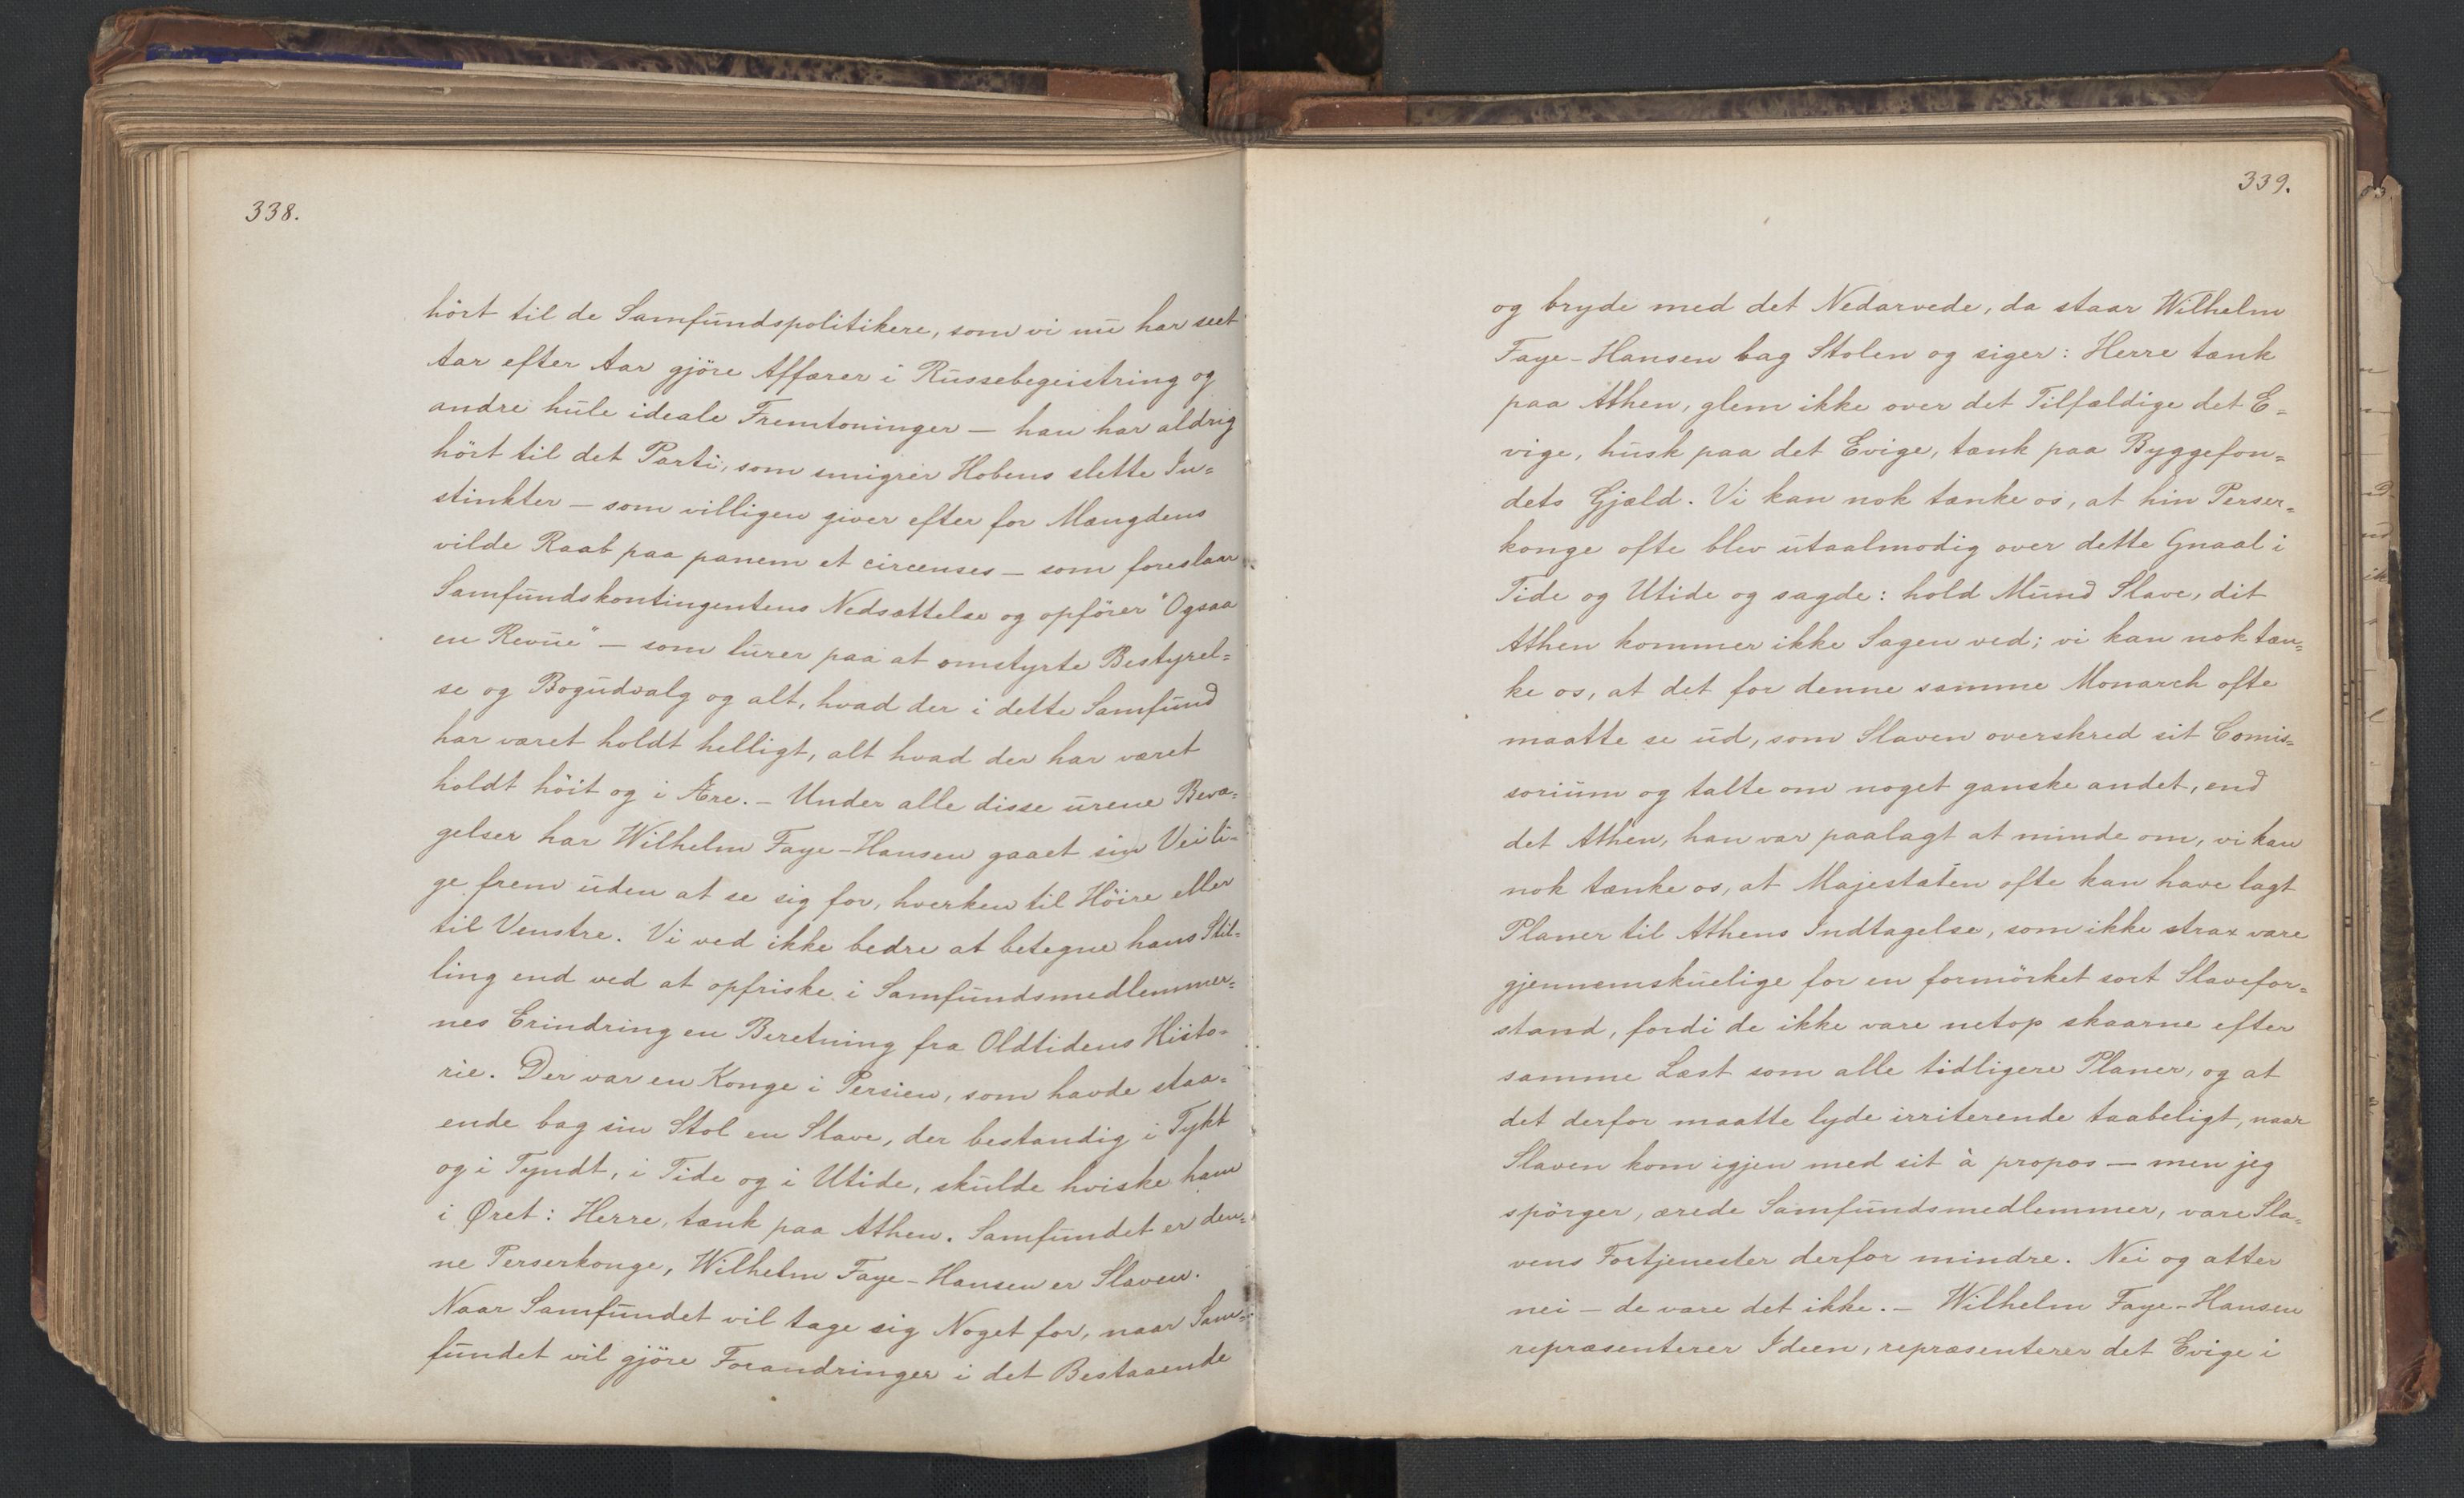 338.
hört til de Samfundspolitikere, som vi nu har seet
Aar efter Aar gjöre Affærer i Russebegeistring og
andre hule ideale Fremtoninger — han har aldrig
hört til det Parti, som smigrer Hobens slette In-
stinkter — som villigen giver efter for Mængdens
vilde Raab paa panem et circenses — som foreslaar
Samfundskontingentens Nedsættelse og opförer "Ogsaa
en Revue" — som lurer paa at omstyrte Bestyrel-
se og Bogudvalg og alt, hvad der i dette Samfund
har været holdt helligt, alt hvad der har været
holdt höit og i Ære. — Under alle disse urene Bevæ-
gelser har Wilhelm Faye-Hansen gaaet sin Vei li-
ge frem uden at se sig for, hverken til Höire eller
til Venstre. Vi ved ikke bedre at betegne hans Stil-
ling end ved at opfriske i Samfundsmedlemmer-
nes Erindring en Beretning fra Oldtidens Histo-
rie. Der var en Konge i Persien, som havde staa-
ende bag sin Stol en Slave, der bestandig i Tykt
og i Tyndt, i Tide og i Utide, skulde hviske ham
i Øret: Herre, tænk paa Athen. Samfundet er den-
ne Perserkonge, Wilhelm Faye-Hansen er Slaven.
Naar Samfundet vil tage sig Noget for, naar Sam-
fundet vil gjöre Forandringer i det Bestaaende
339.
og bryde med det Nedarvede, da staar Wilhelm
Faye-Hansen bag Stolen og siger: Herre tænk
paa Athen, glem ikke over det Tilfældige det E-
vige, husk paa det Evige, tænk paa Byggefon-
dets Gjæld. Vi kan nok tænke os, at hin Perser-
konge ofte blev utaalmodig over dette Gnaal i
Tide og Utide og sagde: hold Mund Slave, dit
Athen kommer ikke Sagen ved; vi kan nok tæn-
ke os, at det for denne samme Monarch ofte
maatte se ud, som Slaven overskred sit Comis-
sorium og talte om noget ganske andet, end
det Athen, han var paalagt at minde om, vi kan
nok tænke os, at Majestæten ofte kan have lagt
Planer til Athens Indtagelse, som ikke strax vare
gjennemskuelige for en formörket sort Slavefor-
stand, fordi de ikke vare netop skaarne efter
samme Læst som alle tidligere Planer, og at
det derfor maatte lyde irriterende taabeligt, naar
Slaven kom igjen med sit à propos — men jeg
spörger, ærede Samfundsmedlemmer, vare Sla-
vens Fortjenester derfor mindre. Nei og atter
nei — de vare det ikke. — Wilhelm Faye-Hansen
repræsenterer Ideen, repræsenterer det Evige i